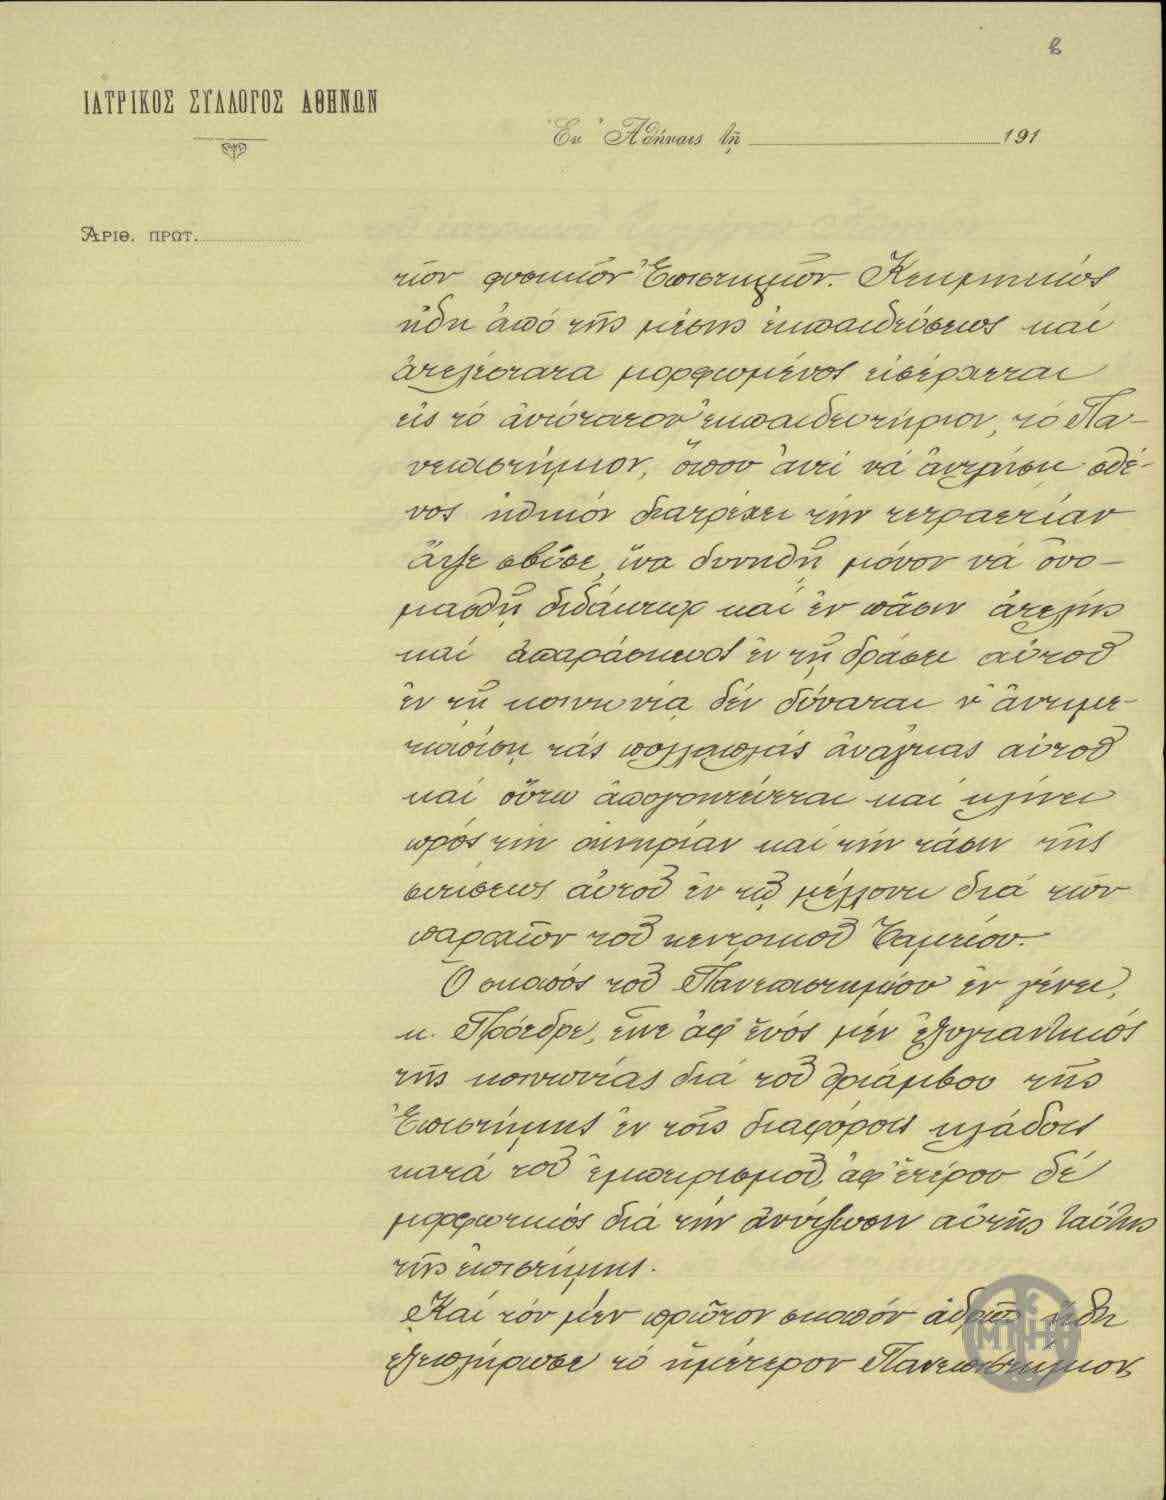 β
ΙΑΤΡΙΚΟΣ ΣΥΛΛΟΓΟΣ ΑΘΗΝΩΝ
Ἐν Ἀθήναις τῇ 191
ΑΡΙΘ. ΠΡΩΤ.
τῶν φυσικῶν Ἐπιστημῶν. Κεκμηκώς
ἤδη ἀπό τῆς μέσης ἐκπαιδεύσεως καί
ἀτελέστατα μορφωμένος εἰσέρχεται
εἰς τό ἀνώτατον ἐκπαιδευτήριον, τό Πα-
νεπιστήμιον, ὅπου ἀντί νά ἀντλήσῃ σθέ-
νος ἠθικόν διατρέχει τήν τετραετίαν
ἄψε σβύσε, ἵνα δυνηθῇ μόνον νά ὀνο-
μασθῇ διδάκτωρ καί ἐν πᾶσιν ἀτελής
καί ἀπαράσκευος ἐν τῇ δράσει αὐτοῦ
ἐν τῇ κοινωνίᾳ δέν δύναται ν' ἀντιμε-
τωπίσῃ τάς πολλαπλάς ἀνάγκας αὐτοῦ
καί οὕτω ἀπογοητεύεται καί κλίνει
πρός τήν οἰκτρίαν καί τήν τάσιν τῆς
σιτίσεως αὐτοῦ ἐν τῷ μέλλοντι διά τῶν
παροχῶν τοῦ κεντρικοῦ Ταμείου.
Ὁ σκοπός τοῦ Πανεπιστημίου ἐν γένει,
κ. Πρόεδρε, εἶνε ἀφ' ἑνός μέν ἐξυγιαντικός
τῆς κοινωνίας διά τοῦ θριάμβου τῆς
Ἐπιστήμης ἐν τοῖς διαφόροις κλάδοις
κατά τοῦ ἐμπειρισμοῦ, ἀφ' ἑτέρου δέ
μορφωτικός διά τήν ἀνύψωσιν αὐτῆς ταύτης
τῆς ἐπιστήμης.
Καί τόν μέν πρῶτον σκοπόν ἁδρῶς ἤδη
ἐξεπλήρωσε τό ἡμέτερον Πανεπιστήμιον,